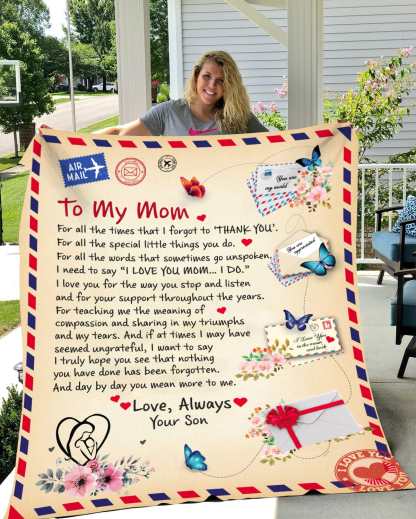 AIR
MAIL
To My Mom
For all the times that I forgot to "THANK YOU".
For all the special little things you do.
For all the words that sometimes go unspoken,
I need to say "I LOVE YOU MOM... I DO."
I love you for the way you stop and listen
and for your support throughout the years.
For teaching me the meaning of
compassion and sharing in my triumphs
and my tears. And if at times I may have
seemed ungrateful, I want to say
I truly hope you see that nothing
you have done has been forgotten.
And day by day you mean more to me.
Love, Always
Your Son
You are
my world
You are
appreciated
I Love You
to the moon
and back
I LOVE YOU
LOVE